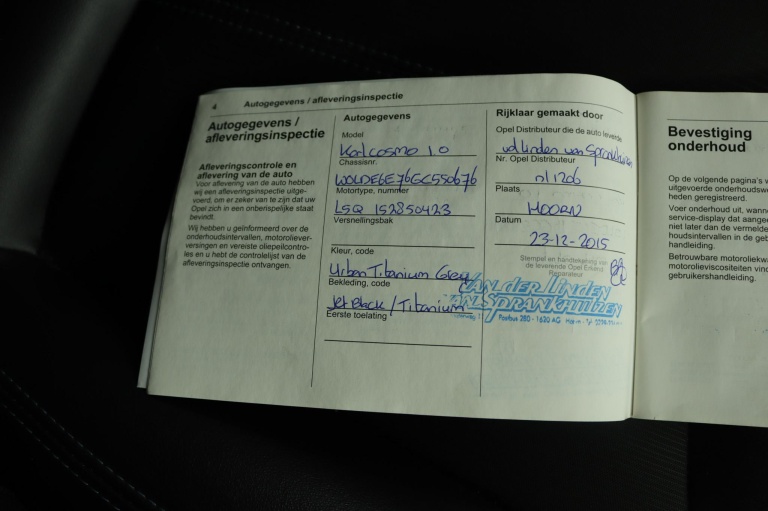 4 Autogegevens / afleveringsinspectie
Autogegevens /
afleveringsinspectie
Afleveringscontrole en
aflevering van de auto
Voor aflevering van de auto hebben
wij een afleveringsinspectie uitge-
voerd, om er zeker van te zijn dat uw
Opel zich in een onberispelijke staat
bevindt.
Wij hebben u geïnformeerd over de
onderhoudsintervallen, motoroliever-
versingen en vereiste oliepeilcontro-
les en u hebt de controlelijst van de
afleveringsinspectie ontvangen.
Autogegevens
Model
Karl cosmo 1.0
Chassisnr.
W0LDE6E76GC550676
Motortype, nummer
LSQ 152850423
Versnellingsbak
Kleur, code
Urban Titanium Grey
Bekleding, code
Jet Black / Titanium
Eerste toelating
Rijklaar gemaakt door
Opel Distributeur die de auto leverde
vd Linden van Sprankhuizen
Nr. Opel Distributeur
nl 1206
Plaats
HOORN
Datum
23-12-2015
Stempel en handtekening van
de leverende Opel Erkend
Reparateur
VAN DER LINDEN
VAN SPRANKHUIZEN
Postbus 280 - 1620 AG
Bevestiging
onderhoud
Op de volgende pagina's w
uitgevoerde onderhoudswe
heden geregistreerd.
Voer onderhoud uit, wanne
service-display dat aangee
niet later dan de vermelde
houdsintervallen in de geb
handleiding.
Betrouwbare motoroliekwa
motorolieviscositeiten vind
gebruikershandleiding.